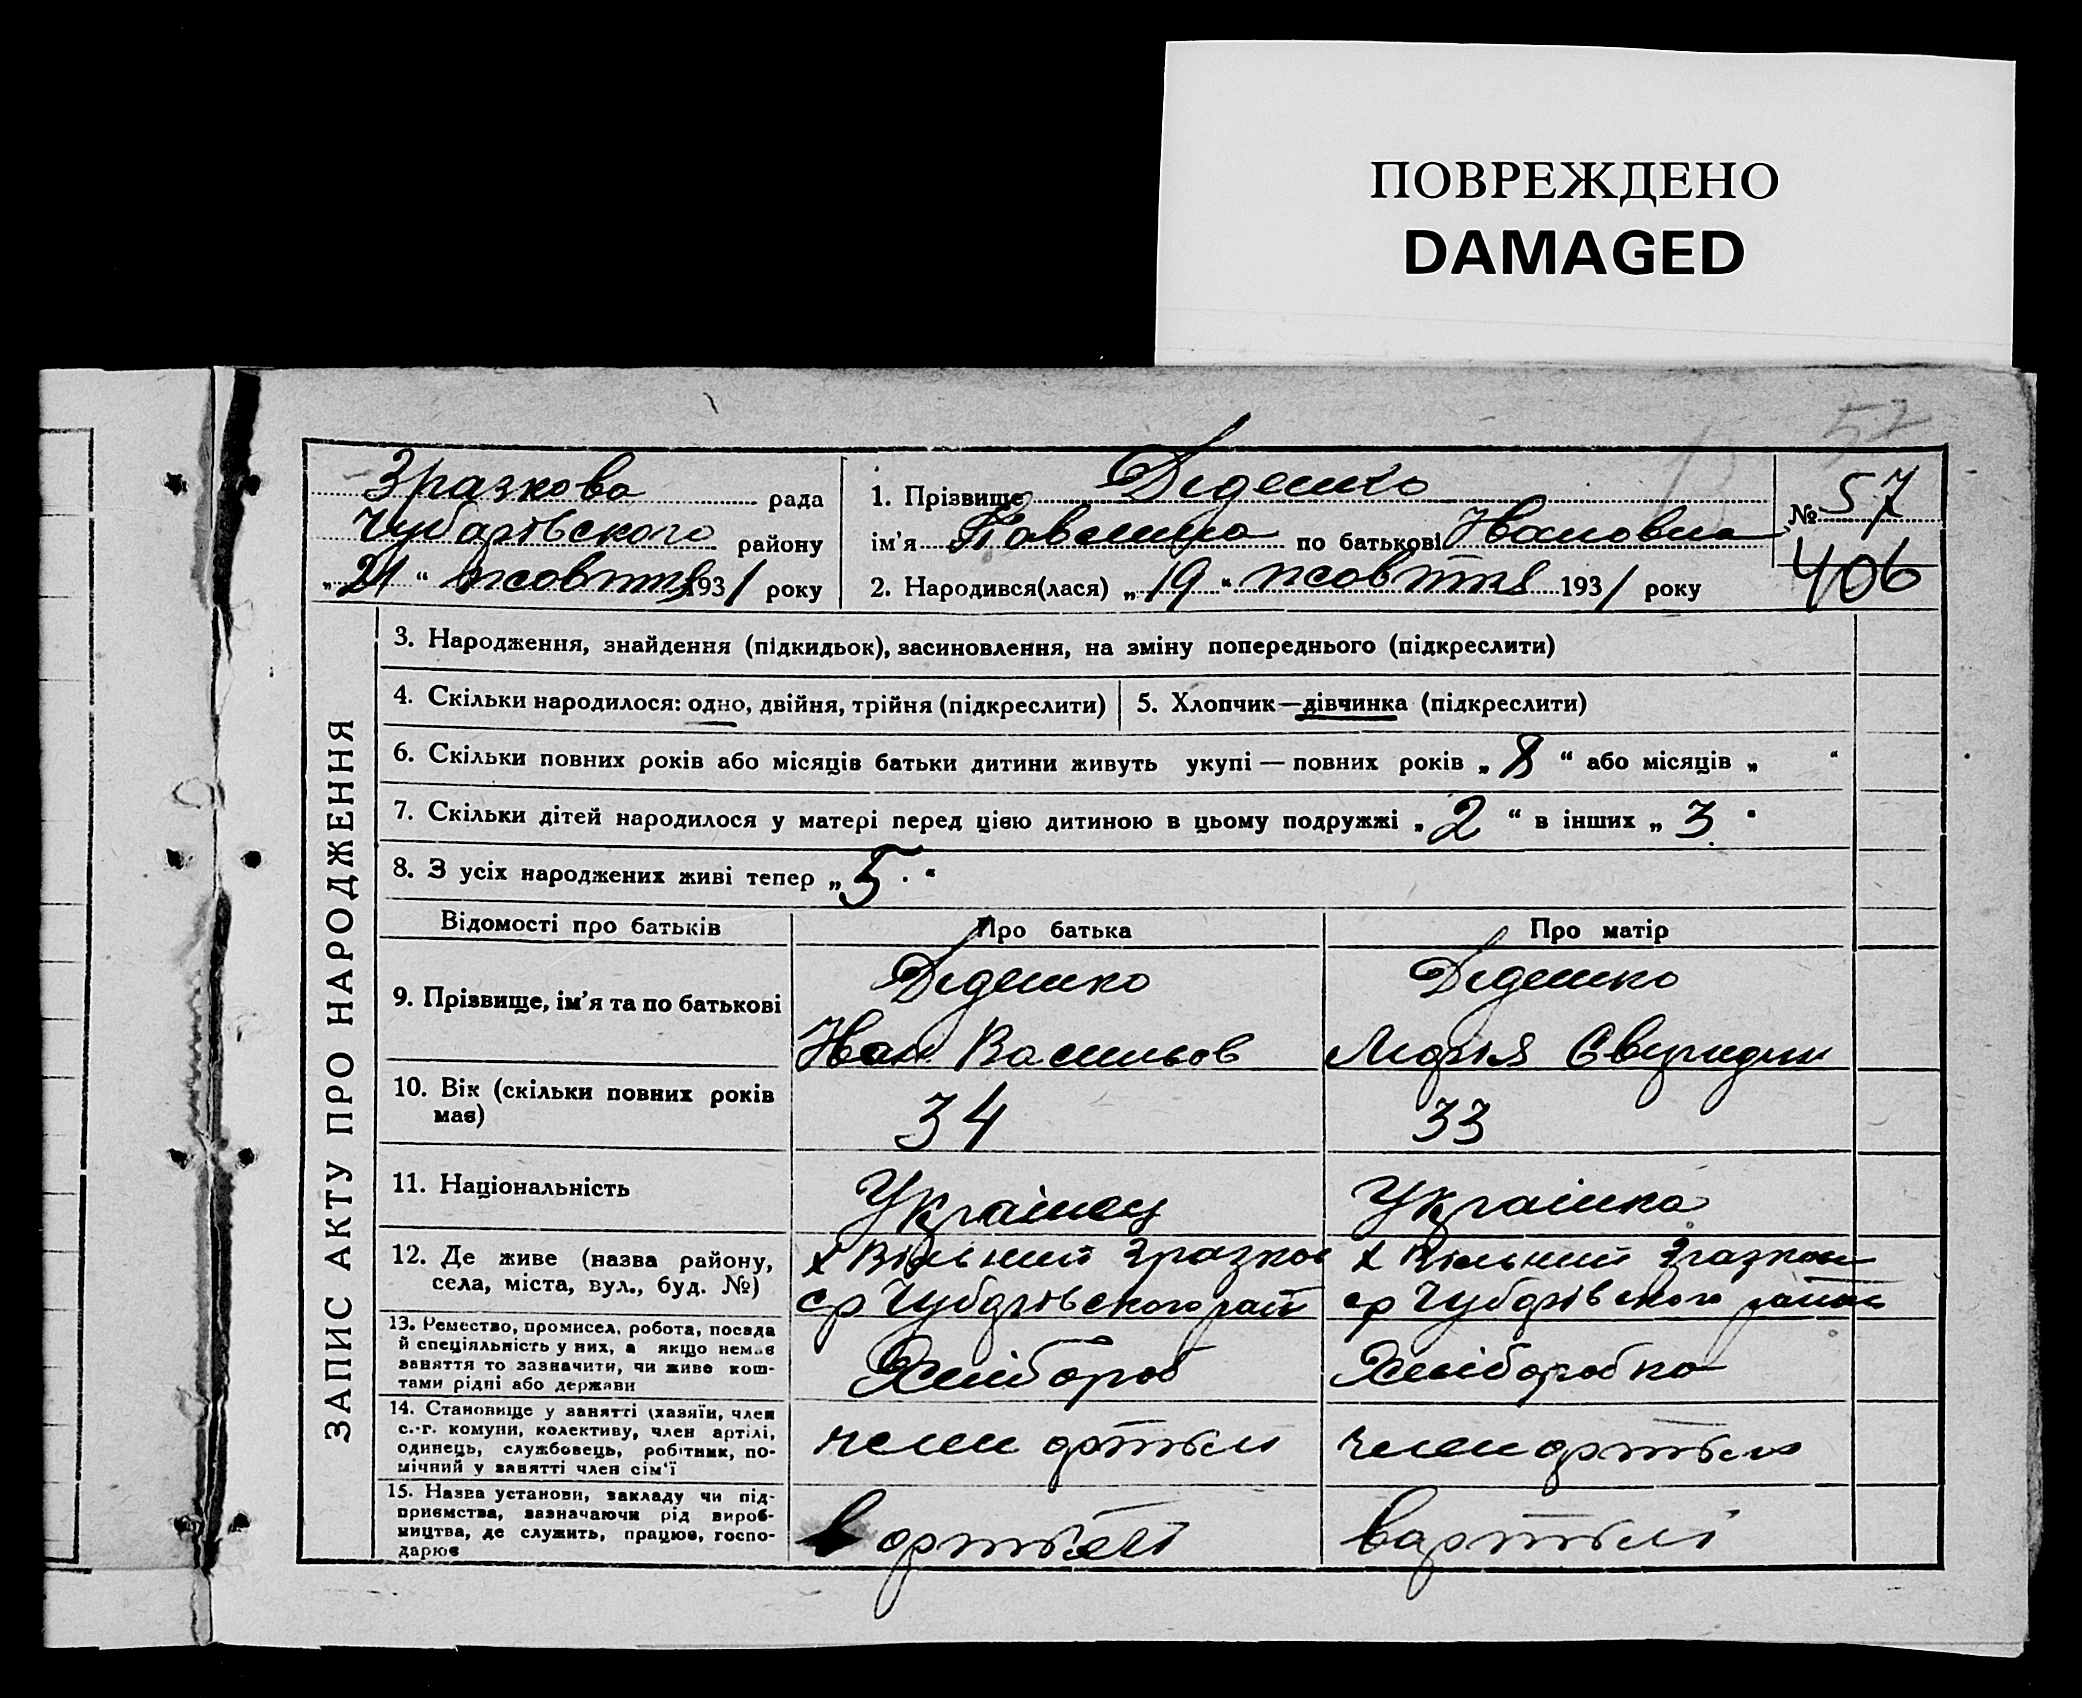 ПОВРЕЖДЕНО
DAMAGED
57
Зразкова рада
Чубарівського району
„21“ жовтня 1931 року
1. Прізвище Дідешко
ім'я Павлина по батькові Івановна
2. Народився(лася) „19“ жовтня 1931 року
№ 57
406
ЗАПИС АКТУ ПРО НАРОДЖЕННЯ
3. Народження, знайдення (підкидьок), засиновлення, на зміну попереднього (підкреслити)
4. Скільки народилося: одно, двійня, трійня (підкреслити)
5. Хлопчик—дівчинка (підкреслити)
6. Скільки повних років або місяців батьки дитини живуть укупі — повних років „8“ або місяців „ “
7. Скільки дітей народилося у матері перед цією дитиною в цьому подружжі „2“ в інших „3“
8. З усіх народжених живі тепер „5“
Відомості про батьків
Про батька
Про матір
9. Прізвище, ім'я та по батькові
Дідешко
Іван Васильов
Дідешко
Марія
10. Вік (скільки повних років
має)
34
33
11. Національність
Українец
Українка
12. Де живе (назва району,
села, міста, вул., буд. №)
х Вільний Зразков
ср Чубарівського рай
х Вільний Зразков
ср Чубарівського району
13. Ремество, промисел, робота, посада
й спеціяльність у них, а якщо немає
заняття то зазначити, чи живе кош-
тами рідні або держави
Хлібороб
Хліборобка
14. Становище у занятті (хазяїн, член
с.-г. комуни, колективу, член артілі,
одинець, службовець, робітник, по-
мічний у занятті член сім'ї
член артыли
член артыли
15. Назва установи, закладу чи під-
приємства, зазначаючи рід вироб-
ництва, де служить, працює, госпо-
дарює
в артылі
в артылі